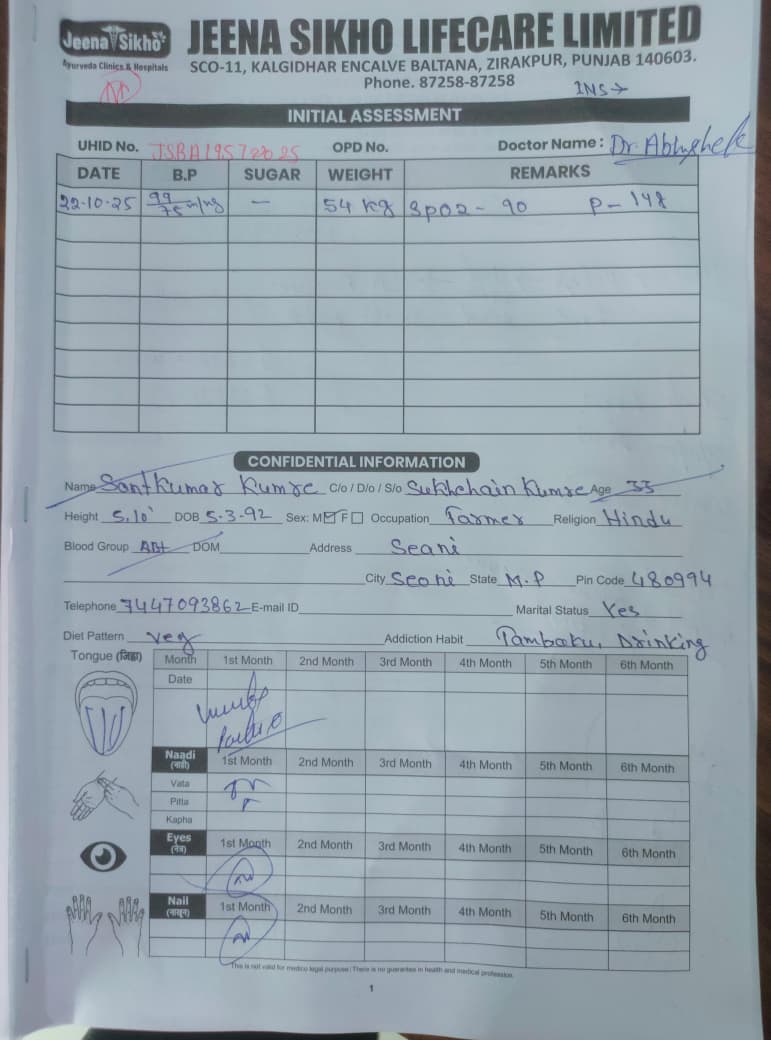 Jeena Sikho
Ayurveda Clinics & Hospitals
JEENA SIKHO LIFECARE LIMITED
SCO-11, KALGIDHAR ENCALVE BALTANA, ZIRAKPUR, PUNJAB 140603.
Phone. 87258-87258
INS→
INITIAL ASSESSMENT
UHID No. OPD No. Doctor Name: Dr. Abhishek
DATE B.P SUGAR WEIGHT REMARKS
22-10-25 99/75 m/hg — 54 kg SpO2- 90 P- 148
CONFIDENTIAL INFORMATION
Name Santkumar Kumre C/o / D/o / S/o Sukhchain Kumre Age 33
Height 5.10' DOB 5-3-92 Sex: M☑ F☐ Occupation Farmer Religion Hindu
Blood Group AB+ DOM Address Seani
City Seoni State M.P Pin Code 480994
Telephone 7447093862 E-mail ID Marital Status Yes
Diet Pattern veg Addiction Habit Tambaku, Drinking
Tongue (जिह्वा) Month 1st Month 2nd Month 3rd Month 4th Month 5th Month 6th Month
Date
Naadi (नाड़ी) 1st Month 2nd Month 3rd Month 4th Month 5th Month 6th Month
Vata
Pitta
Kapha
Eyes (नेत्र) 1st Month 2nd Month 3rd Month 4th Month 5th Month 6th Month
Nail (नाखून) 1st Month 2nd Month 3rd Month 4th Month 5th Month 6th Month
This is not valid for medico legal purpose / There is no guarantee in health and medical profession.
1